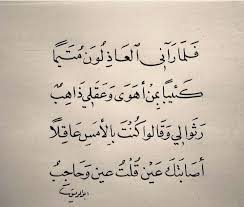 فَلَمَّا رَآنِي العَاذِلُونَ مُتَيَّمًا
كَئِيبًا بِمَنْ أَهْوَى وَعَقْلِي ذَاهِبٌ
رَثَوْا لِي وَقَالُوا كُنْتَ بِالأَمْسِ عَاقِلًا
أَصَابَتْكَ عَيْنٌ قُلْتُ عَيْنٌ وَحَاجِبُ